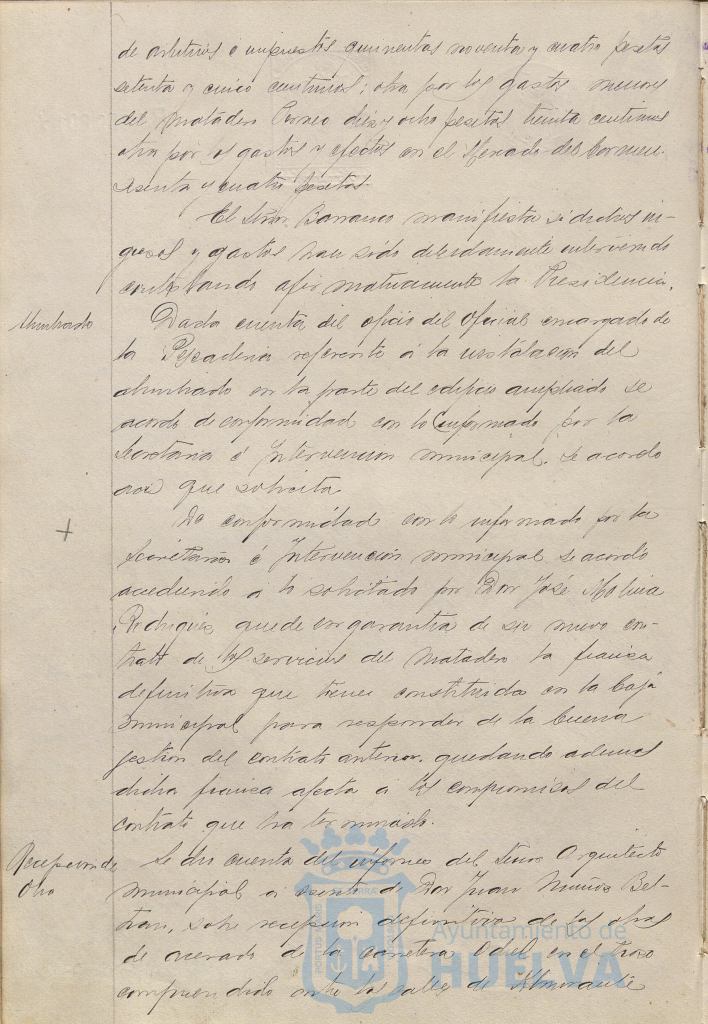 de arbitrios é impuestos quinientas noventa y cuatro pesetas
setenta y cinco centimos; otra por los gastos menores
del Matadero Correo diez y ocho pesetas treinta centimos
otra por os gastos y efectos en el del Carmen
sesenta y cuatro pesetas.
El Señor Barranco manifiesta si dichos in-
gresos y gastos han sido debidamente intervenido
contestando afirmativamente la Presidencia.
Alumbrado
Dada cuenta del oficio del Oficial encargado de
la Pescaderia referente á la instalacion del
alumbrado en la parte del edificio ampliado se
acordo de conformidad con lo informado por la
Secretaria é Intervencion municipal. se acordo
que solicita
+
De conformidad con lo informado por la
Secretaria é Intervencion municipal se acordó
accediendo á lo solicitado por Don José Molina
Rodriguez, quede en garantia de su nuevo con-
trato de los servicios del Matadero la fianza
definitiva que tiene constituida en la Caja
municipal para responder de la buena
gestion del contrato anterior, quedando ademas
dicha fianza afecta á los compromisos del
contrato que ha terminado.
Recepcion de
obra
Se dió cuenta del informe del Señor Arquitecto
municipal á de Don Juan Muñoz Bel-
tran, sobre recepcion definitiva de las obras
de acerado de la carretera Odiel en el trozo
comprendido entre las calles de Almirante
PORTUS MARIS
Ayuntamiento de
HUELVA